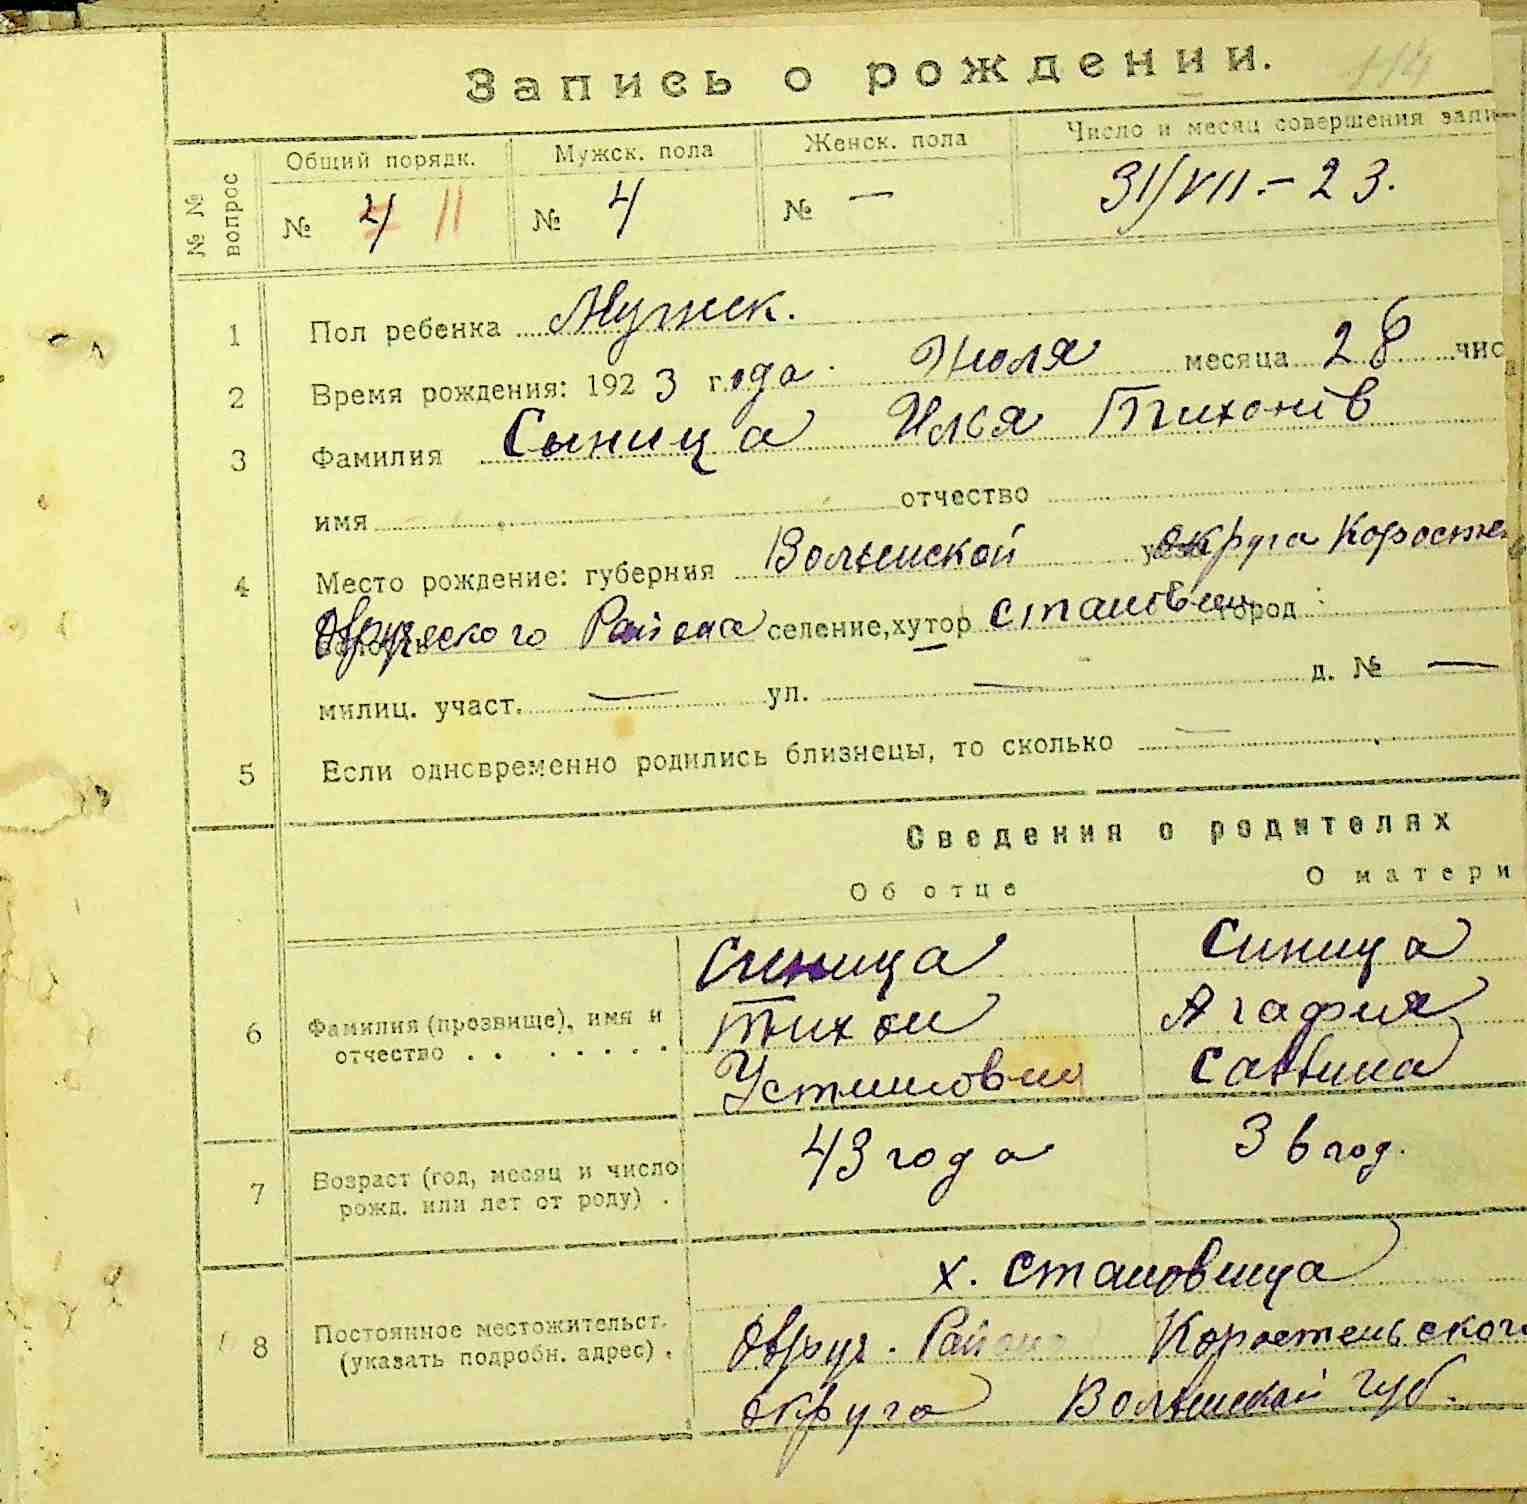 Запись о рождении. 114
№ № вопрос Общий порядк. Мужск. пола Женск. пола Число и месяц совершения запи
№ 4 11 № 4 № — 31/VII.-23.
1 Пол ребенка Мужск.
2 Время рождения: 1923 года Июля месяца 28 чис
3 Фамилия Сыница Илья Тихонів
имя отчество
4 Место рождение: губерния Волынской округа Коросте
Овручского Района селение, хутор город
милиц. участ. — ул. — д. № —
5 Если одновременно родились близнецы, то сколько —
Сведения о родителях
Об отце О матери
Синица Синица
6 Фамилия (прозвище), имя и Тихон Агафия
отчество . . . . . . . Устинович Саввина
7 Возраст (год, месяц и число 43 года 36 год.
рожд. или лет от роду) .
х. Становища
8 Постоянное местожительст. Овруч. Района Коростеньского
(указать подробн. адрес) .
округа Волынской губ.